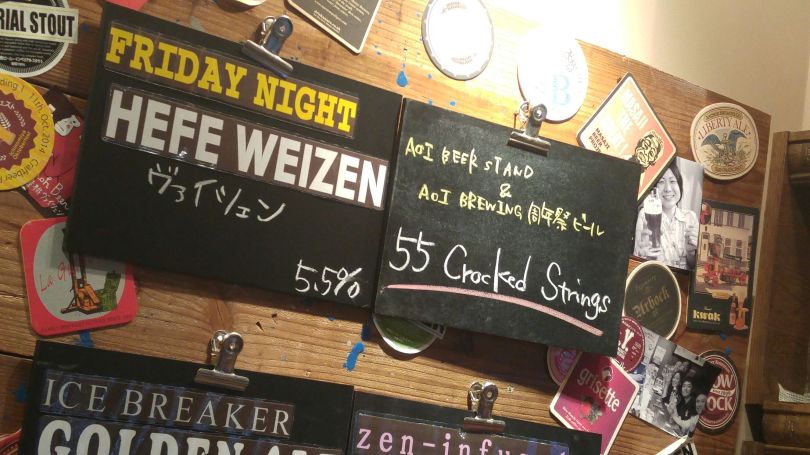 RIAL STOUT
FRIDAY NIGHT
HEFE WEIZEN
ヴァイツェン
5.5%
AOI BEER STAND
&
AOI BREWING 周年祭ビール
55 Crocked Strings
LIBERTY ALE
B
11 Oct. 2014
kwak
grisette
ICE BREAKER
zen-infu